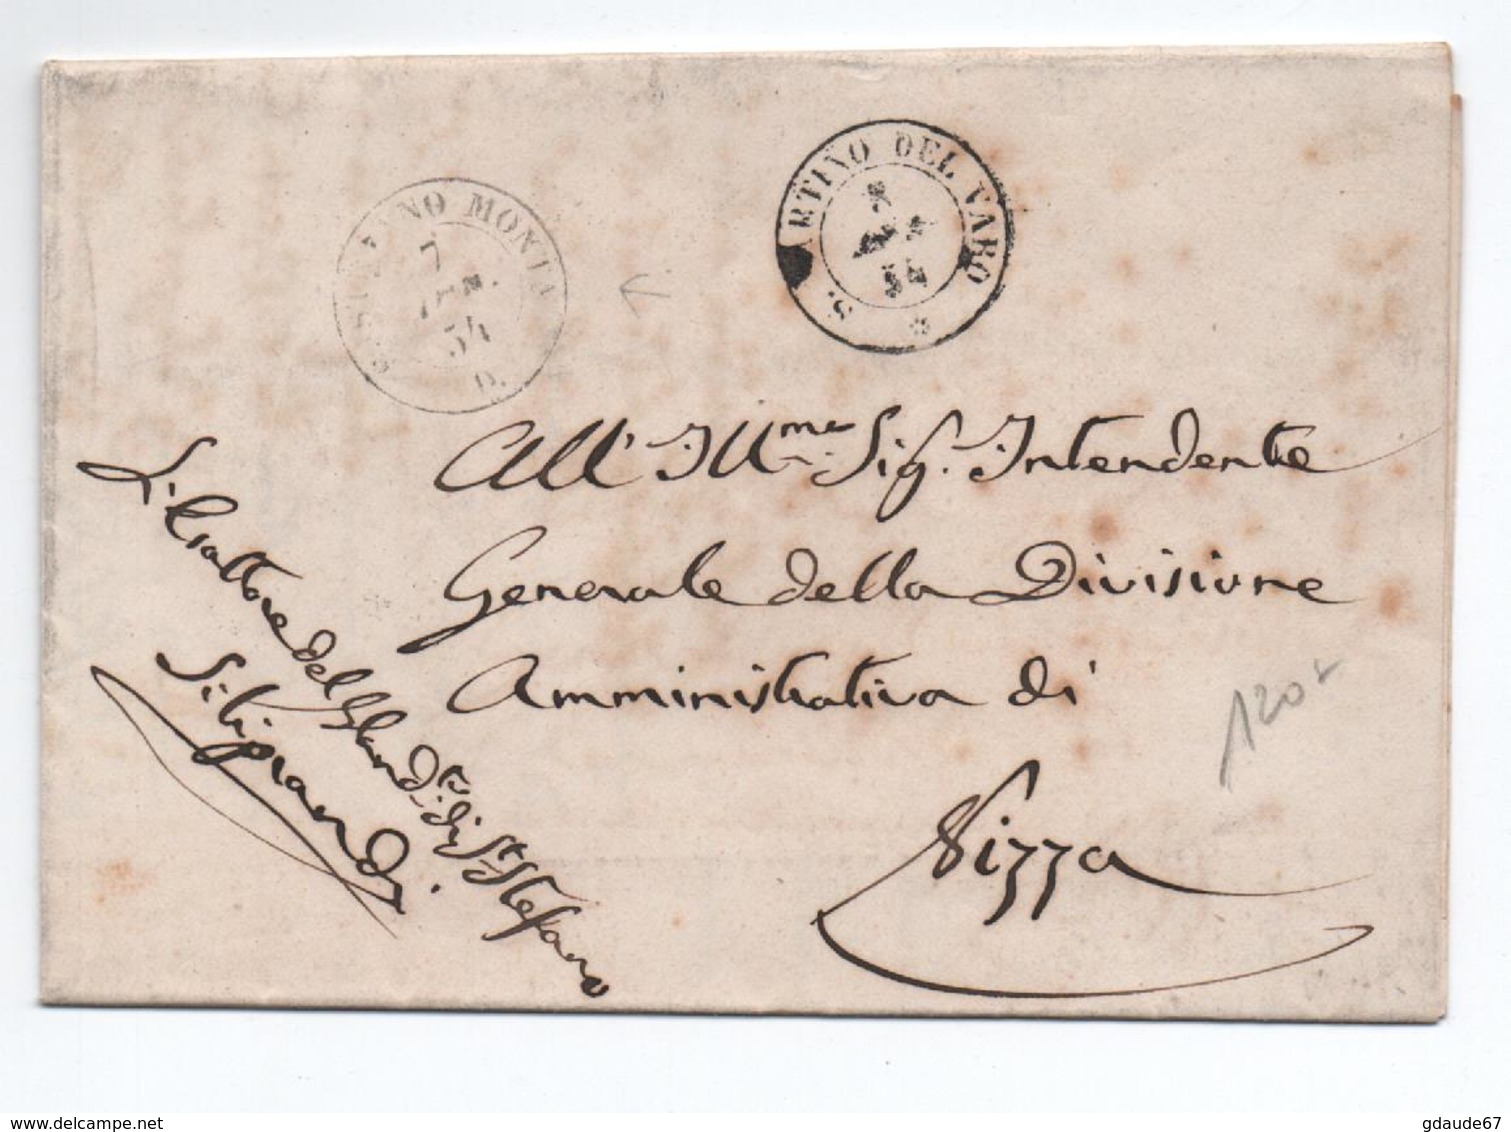 S. STEFANO MONTA
7
GEN.
54
D.
S. MARTINO DEL VARO
8
54
*
All' Ill.me Sig. Intendente
Generale della Divisione
Amministrativa di
Nizza
L'Esattore del Mand.to di St. Stefano
Filipprandi
120
www.delcampe.net
gdaude67